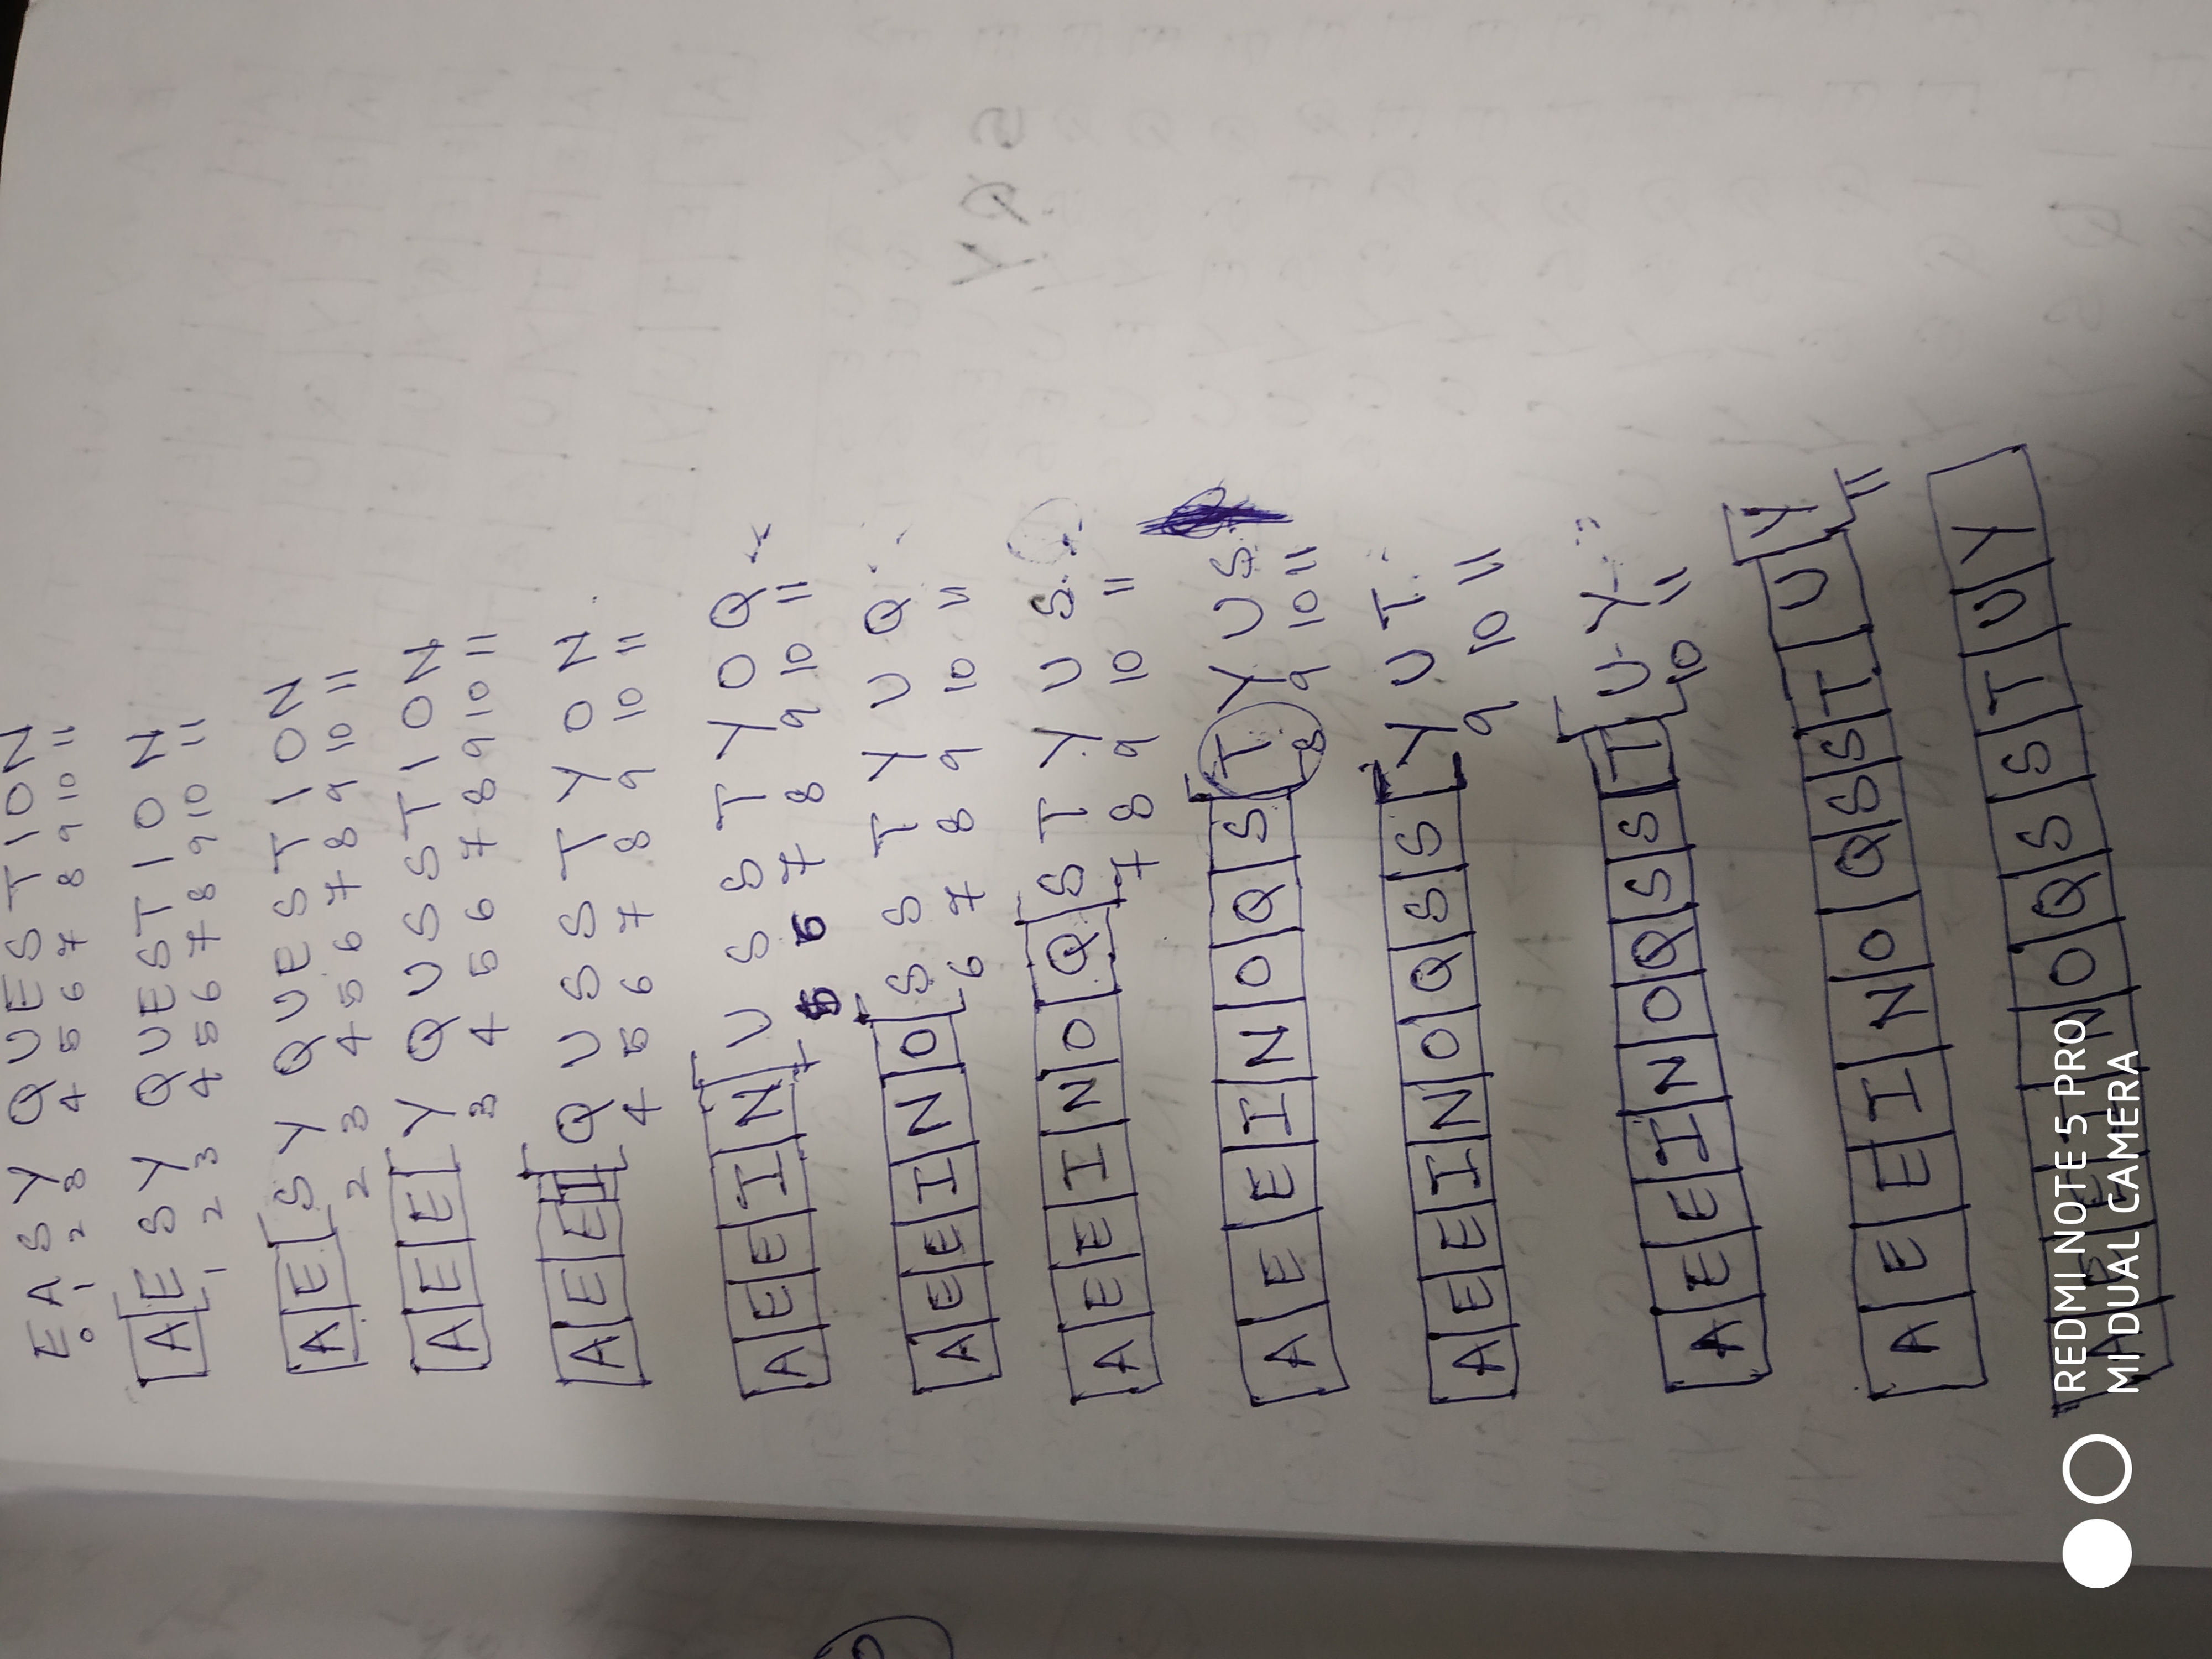 E A S Y Q U E S T I O N
0 1 2 3 4 5 6 7 8 9 10 11
A E S Y Q U E S T I O N
1 2 3 4 5 6 7 8 9 10 11
A E S Y Q U E S T I O N
2 3 4 5 6 7 8 9 10 11
A E E Y Q U S S T I O N
3 4 5 6 7 8 9 10 11
A E E I Q U S S T Y O N
4 5 6 7 8 9 10 11
A E E I N U S S T Y O Q
5 6 7 8 9 10 11
A E E I N O S S T Y U Q
6 7 8 9 10 11
A E E I N O Q S T Y U S
7 8 9 10 11
A E E I N O Q S T Y U S
8 9 10 11
A E E I N O Q S S Y U T
9 10 11
A E E I N O Q S S T U Y
10 11
A E E I N O Q S S T U Y
11
A E E I N O Q S S T U Y
REDMI NOTE 5 PRO
MI DUAL CAMERA